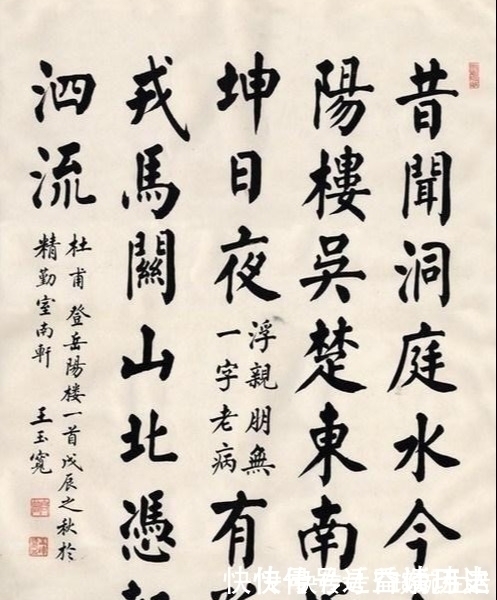 昔聞洞庭水今
陽樓吳楚東南
坤日夜
浮親朋無
一字老病
有
戎馬關山北憑
泗流
杜甫登岳陽樓一首戊辰之秋於
精勤室南軒
王玉寬